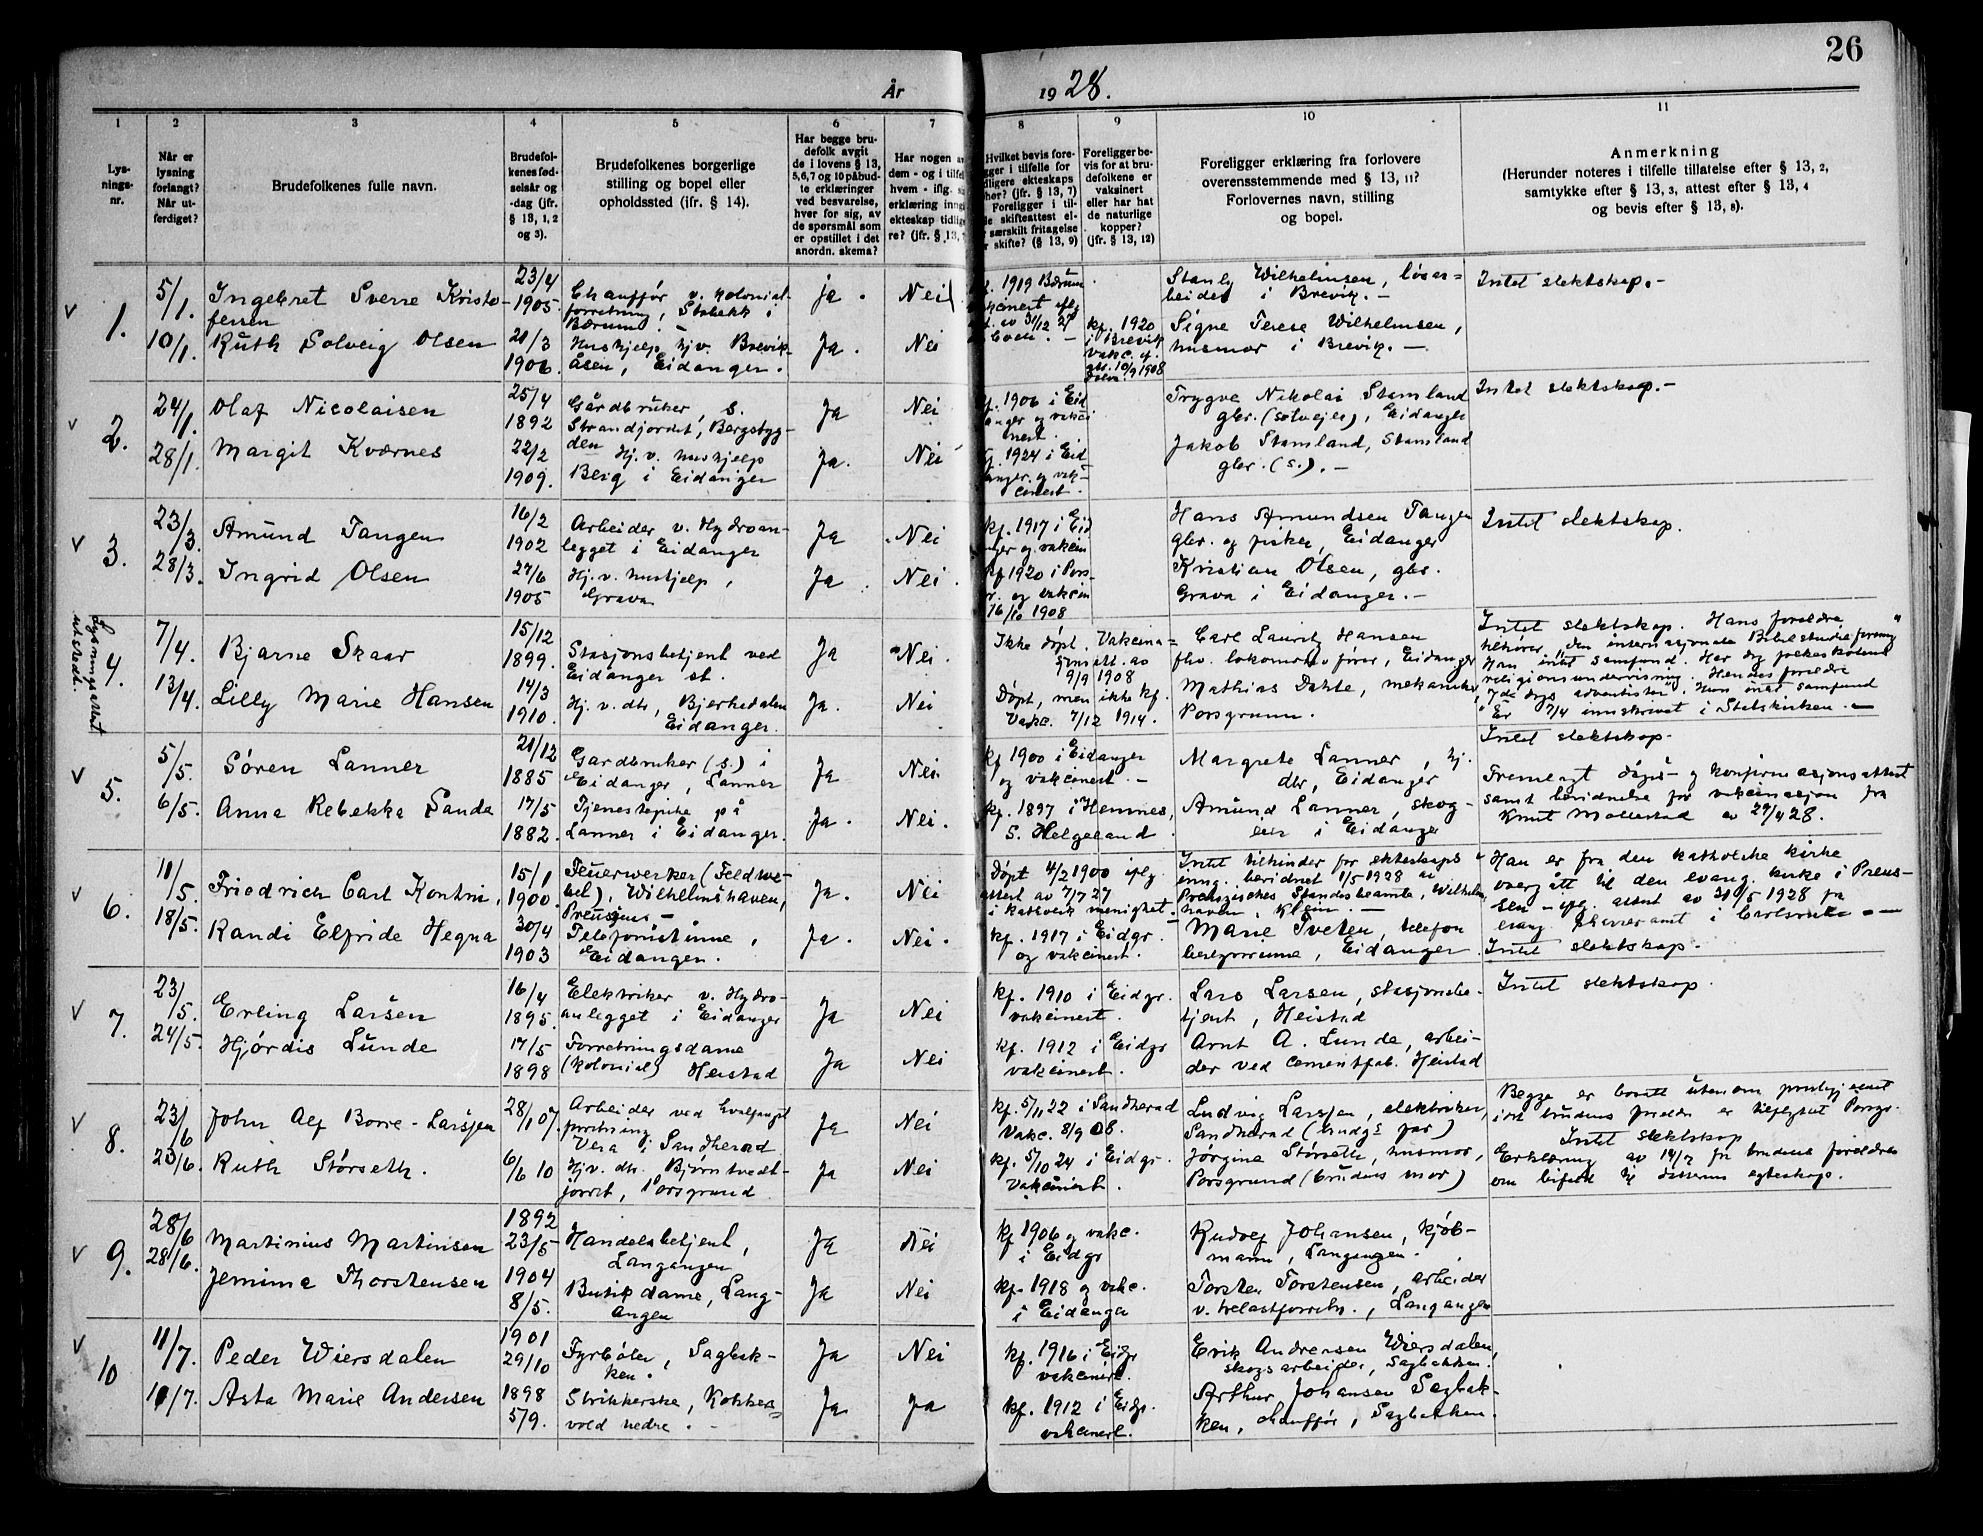 26
År 1928.
1 2 3 4 5 6 7 8 9 10 11
Lys-
nings-
nr.
Når er
lysning
forlangt?
Når ut-
ferdiget?
Brudefolkenes fulle navn.
Brudefol-
kenes fød-
selsår og
-dag (jfr.
§ 13, 1, 2
og 3).
Brudefolkenes borgerlige
stilling og bopel eller
opholdssted (ifr. § 14).
Har begge bru-
defolk avgit
de i lovens § 13,
5,6,7 og 10 påbud-
te erklæringer
ved besvarelse,
hver for sig, av
de spørsmål som
er opstillet i det
anordn. skema?
Har nogen a
dem - og i tilfel
hvem - iflg. s
erklæring inng
ekteskap tidlig
re? (jfr. § 13,
Hvilket bevis fore-
gger i tilfelle for
dligere ekteskaps
her? (jfr. § 13, 7)
Foreligger i til-
le skifteattest el-
særskilt fritagelse
skifte? (§ 13, 9)
Foreligger be-
vis for at bru-
defolkene er
vaksinert
eller har hat
de naturlige
kopper?
(jfr. § 13, 12)
Foreligger erklæring fra forlovere
overensstemmende med § 13, 11?
Forlovernes navn, stilling
og bopel.
Anmerkning
(Herunder noteres i tilfelle tillatelse efter § 13, 2,
samtykke efter § 13, 3, attest efter § 13, 4
og bevis efter § 13, 8).
v 1.
5/1.
10/1.
Ingebret Sverre Kristo-
fersen
Ruth Solveig Olsen
23/4
1905
21/3
1906
Chauffør v. kolonial-
forretning, Stabekk i
Bærum. -
Hushjelp hj.v. Brevik-
åsen, Eidanger.
Ja. Nei
Ja. Nei
1919 Bærum
kf. 1920
i Brevik
vakc.
1908
Stanly Wilhelmsen, løsar-
beider i Brevik. -
Signe Terese Wilhelmsen,
husmor i Brevik. -
Intet slektskap. -
v 2.
24/1.
28/1.
Olaf Nicolaisen
Margit Kværnes
25/4
1892
22/2
1909.
Gårdbruker, s.
Strandjordet, Bergsbyg-
den
Hj.v. hushjelp
Berg i Eidanger
Ja Nei
Ja. Nei
kf. 1906 i Eid
anger og vakci
nert.
kf. 1924 i Eid
anger. og vak-
cinert.
Trygve Nikolai Stamland
gbr. (selveier), Eidanger
Jakob Stamland, Stamland
gbr. (s.). -
Intet slektskap. -
v 3.
23/3.
28/3.
Amund Tangen
Ingrid Olsen
16/2
1902
27/6
1905
Arbeider v. Hydroan-
legget i Eidanger
Hj.v. hushjelp,
Grava
Ja Nei
Ja Nei.
kf. 1917 i Eid
nger og vakcin
kf 1920 i Pors-
gr. og vakcin
1908
Hans Amundsen Tangen
gbr. og fisker, Eidanger
Kristian Olsen, gbr.
Grava i Eidanger. -
Intet slektskap.
Lysningsattest
utstedt.
4.
7/4.
13/4.
Bjarne Skaar
Lilly Marie Hansen
15/12
1899.
14/3
1910.
Stasjonsbetjent ved
Eidanger st.
Hj.v. dtr, Bjerkedalen
Eidanger.
Ja Nei.
Ja. Nei
Ikke døpt. Vakcina-
sjonsatt. av
9/9 1908
Døpt, men ikke kf.
Vakc. 7/12 1914.
Carl Lauritz Hansen
fhv. lokomotivfører, Eidanger
Mathias Dahle, mekaniker,
Porsgrunn.
Intet slektskap. Hans foreldre
tilhører "Den internasjonale Bibelstudieforening"
Han intet samfund. Har dog folkeskolens
religionsundervisning. Hennes foreldre
7de dags adventister. Hun intet samfund
Er 7/4 innskrevet i Statskirken. -
v 5.
5/5.
6/5.
Søren Lanner
Anna Rebekka Sanda
21/12
1885
17/5
1882.
Gardbruker (s.) i
Eidanger, Lanner
Tjenestepike på
Lanner i Eidanger.
Ja Nei.
Ja. Nei.
kf 1900 i Eidanger
og vakcinert. -
kf. 1897 i Hemnes,
S. Helgeland
Margrete Lanner, hj.
dtr, Eidanger
Amund Lanner, skog-
eier i Eidanger
Intet slektskap.
Fremlagt dåps- og konfirmasjonsattest
samt bevidnelse for vakcinasjon fra
Knut Mollestad av 29/4 28.
v 6.
11/5.
18/5.
Friedrich Carl Kontni,
Randi Elfride Hegna
15/1
1900.
30/4
1903
Feuerwerker (Feldwe-
bel), Wilhelmshaven,
Preussen -
Telefonistinne,
Eidanger.
Ja. Nei
Ja. Nei.
Døpt 4/2 1900 iflg.
attest av 7/7 27
i katholsk menighet.
kf. 1917 i Eidgr.
og vakcinert.
Intet tilhinder for ekteskaps
inng. bevidnet 1/5 1928 av
Preussisches Standesbeamte, Wilhelms
haven, Klein. -
Marie Tveten, telefon
bestyrerinne, Eidanger.
Han er fra den katholske kirke
overgått til den evang. kirke i Preus-
sen - iflg. attest av 1928 fra
evang. Pfarramt i Carlsruhe. -
Intet slektskap.
v 7.
23/5.
24/5.
Erling Larsen
Hjördis Lunde
16/4
1895.
17/5
1898
Elektriker v. Hydro-
anlegget i Eidanger
Forretningsdame
(kolonial) Heistad
Ja Nei
Ja Nei
kf. 1910 i Eidgr.
vakcinert.
kf. 1912 i Eidgr
vakcinert.
Lars Larsen, stasjonsbe-
tjent, Heistad
Arnt A. Lunde, arbei-
der ved cementfab. Heistad
Intet slektskap.
v 8.
23/6
23/6.
John Alf Borre-Larsjen
Ruth Störseth.
28/1 07.
6/6 10
Arbeider ved hvalfangst
forretning
Vera i Sandherad
Hj.v. dtr. Bjørntvedt-
jordet, Porsgrund
Ja Nei
Ja Nei
kf. 5/11 22 i Sandherad
Vakc. 8/9 08.
kf. 5/10 24 i Eidgr.
Vakcinert.
Ludvig Larsjen, elektriker,
Sandherad (brudgs far)
Jørgine Störseth, husmor,
Porsgrund (brudens mor)
Begge er bosatt utenom prestegjeldet
idet brudens foreldre er tilflyttet Porsgr.
Intet slektskap
Erklæring av fra brudens foreldre
om bifall til datterens egteskap.
v 9.
28/6
28/6.
Martinius Martinsen
Jemima Thorstensen
1892
23/5
1904
8/5.
Handelsbetjent,
Langangen
Butikdame, Lang-
angen
Ja Nei
Ja Nei
kf 1906 og vakc.
i Eidgr
kf. 1918 og vakc.
i Eidanger
Rudolf Johansen, kjøb-
mann, Langangen.
Torsten Torstensen, arbeider
v. , Langangen
v 10
11/7.
11/7.
Peder Wiersdalen
Asta Marie Andersen
1901
29/10
1898
5/9.
Fyrbøter, Sagbak-
ken.
Strikkerske, Kokkers-
vold nedre. -
Ja Nei
Ja Ja
kf. 1916 i Eidgr
vakcinert.
kf. 1912 i Eidgr.
vakcinert.
Erik Andersen Wiersdalen,
skogsarbeider, Sagbakken.
Arthur Johansen Sagbak-
ken, chauffør, Sagbakken.